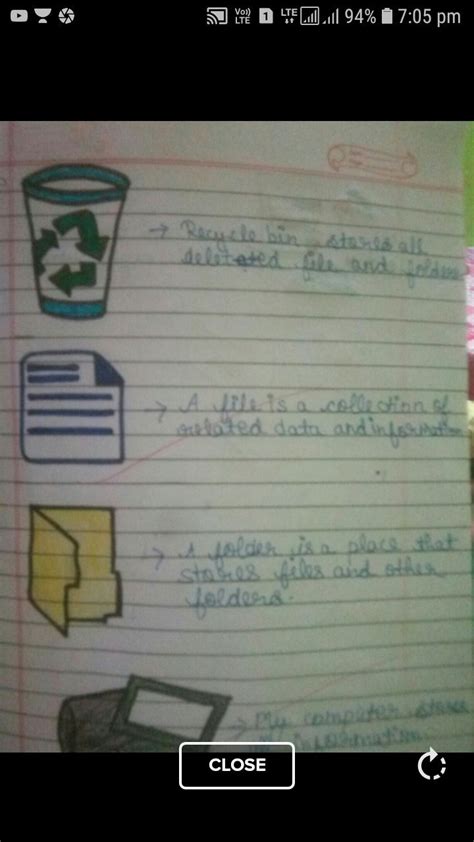 Vo)) LTE 1 LTE 94% 7:05 pm
→ Recycle bin stores all
deleted file and folders
→ A file is a collection of
related data and information
→ A folder is a place that
stores files and other
folders.
→ My computer stores
information.
CLOSE